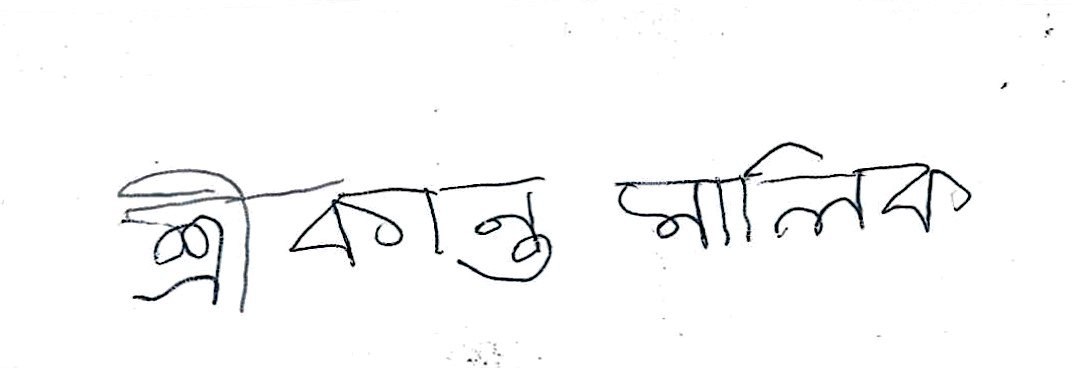 শ্রী কানু মালিক